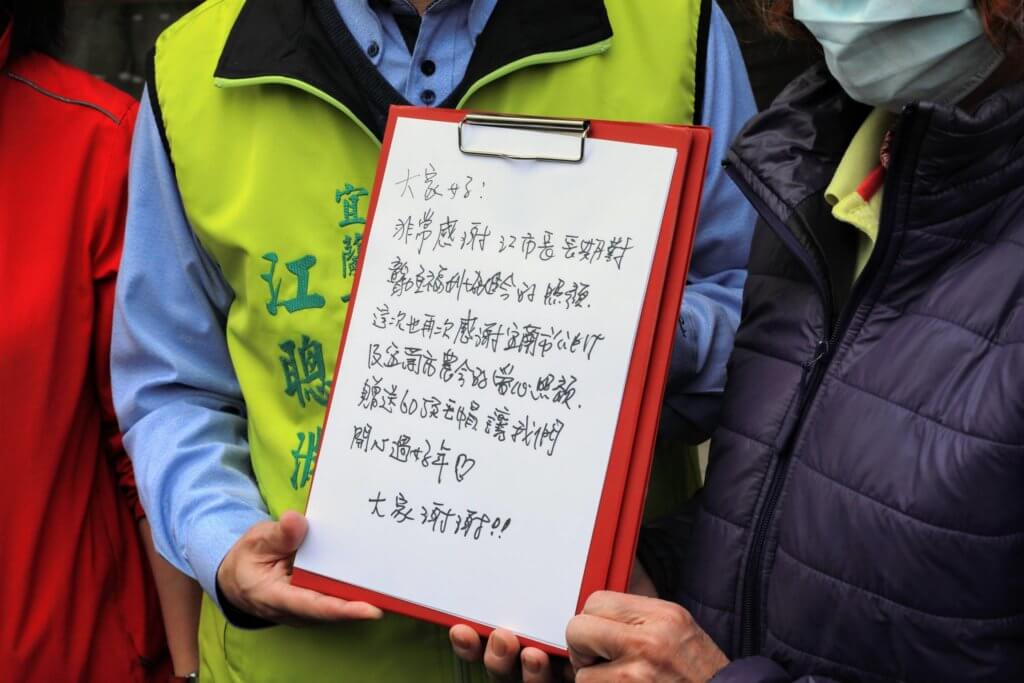 宜蘭
江聰
大家好：
非常感謝江市長長期對
聾啞福利協會的照顧.
這次也再次感謝宜蘭市公所
及宜蘭市農會的愛心照顧.
贈送60頂毛帽讓我們
開心過好年♡
大家謝謝!!